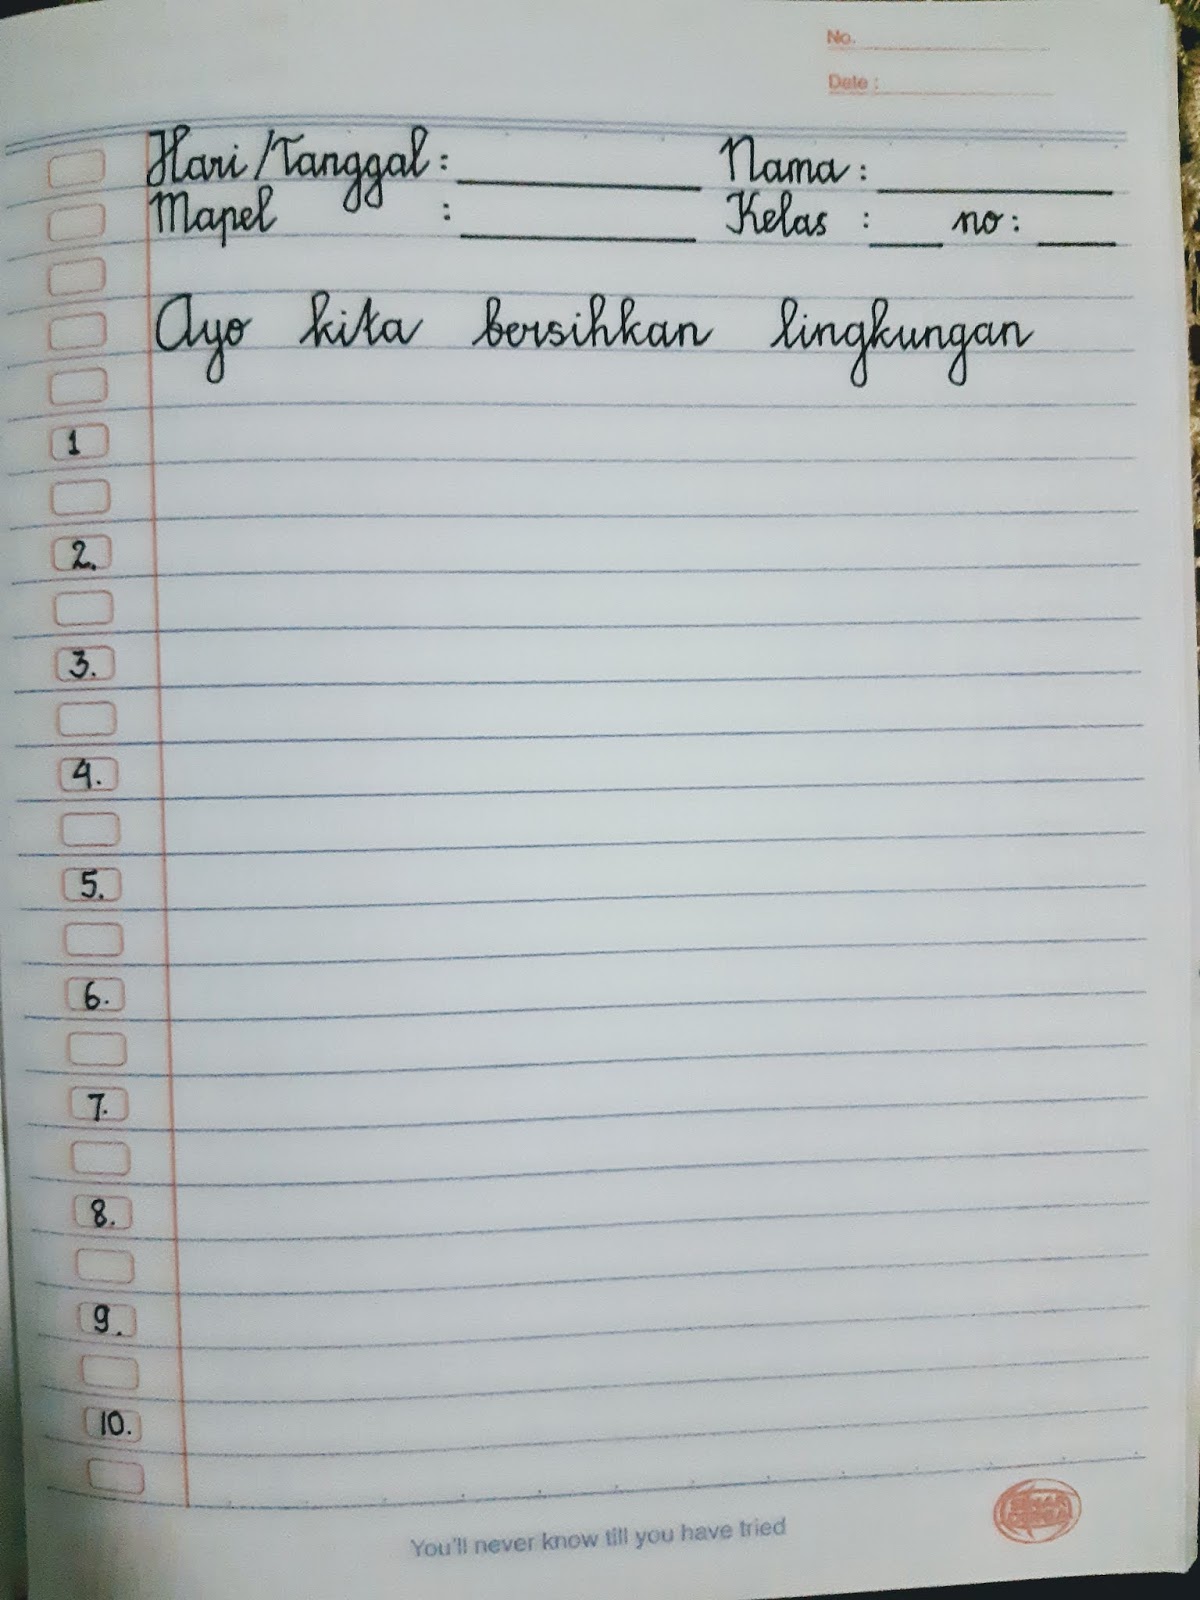 No.
Date :
Hari/Tanggal : Nama :
Mapel : Kelas : no :
Ayo kita bersihkan lingkungan
1
2.
3.
4.
5.
6.
7.
8.
9.
10.
You'll never know till you have tried